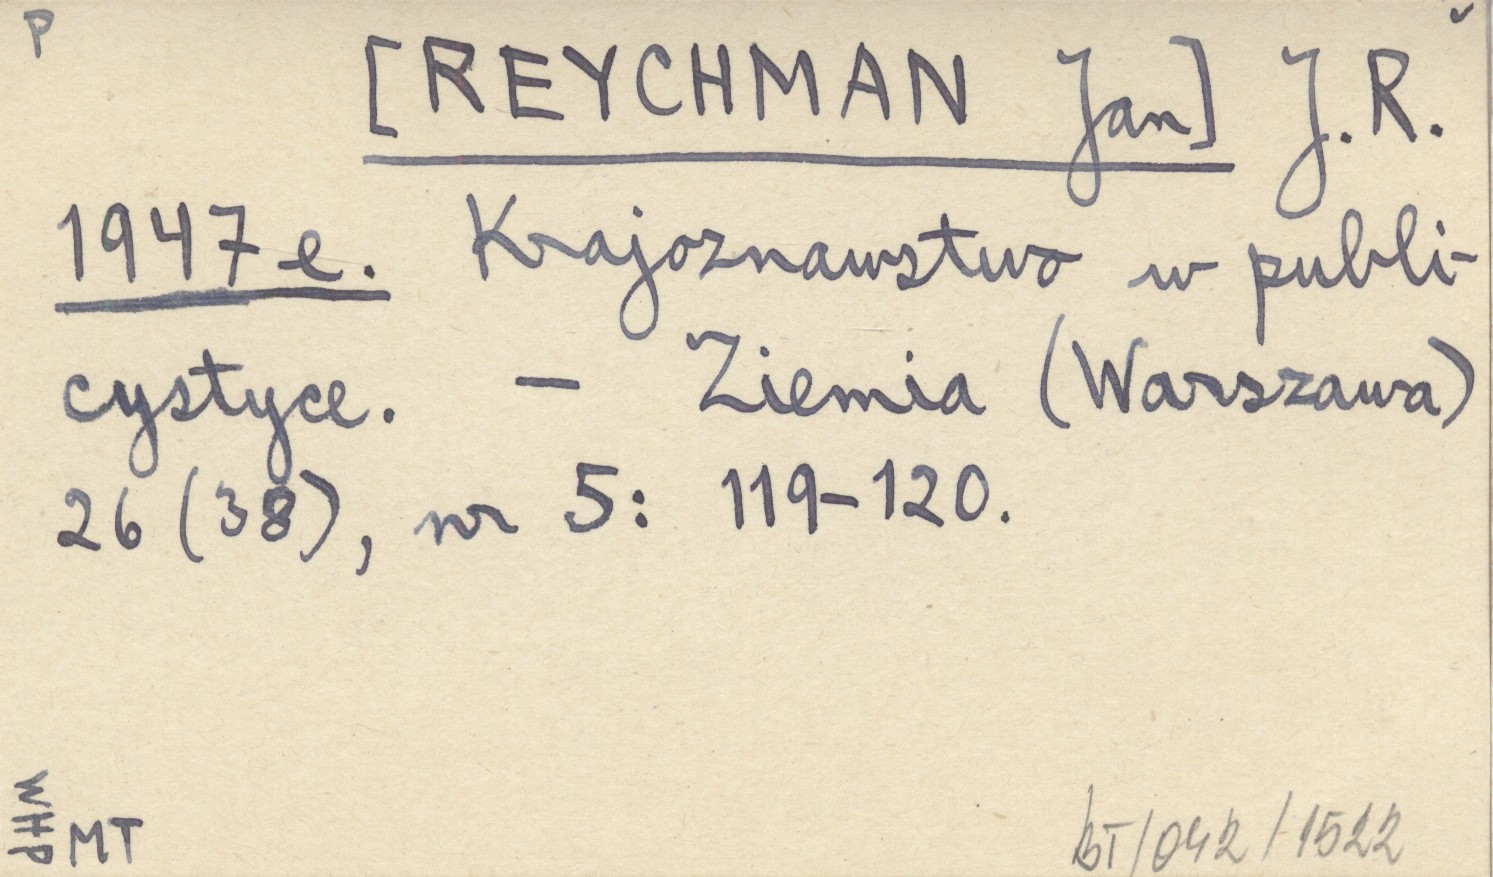 P
[REYCHMAN Jan] J.R.
1947e. Krajoznawstwo w publi-
cystyce. – Ziemia (Warszawa)
26 (38), nr 5: 119–120.
WHP
MT
BT/042/1522